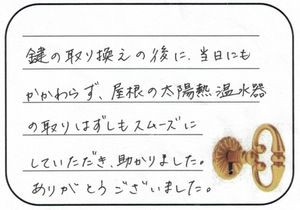 鍵の取り換えの後に、当日にも
かかわらず、屋根の太陽熱温水器
の取りはずしもスムーズに
していただき、助かりました。
ありがとうございました。